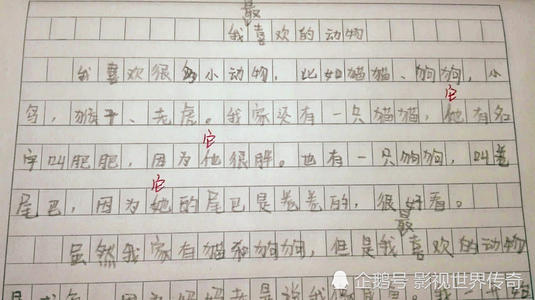 最
我喜欢的动物
我喜欢很多小动物,比如猫猫、狗狗,小
鸟,猴子、老虎。我家里有一只猫猫,他有名
它
字叫肥肥,因为他很胖。也有一只狗狗,叫卷
它
尾巴,因为她的尾巴是卷卷的,很好看。
它
最
虽然我家有猫和狗狗,但是我喜欢的动物
因为妈妈老是说我
企鹅号 影视世界传奇